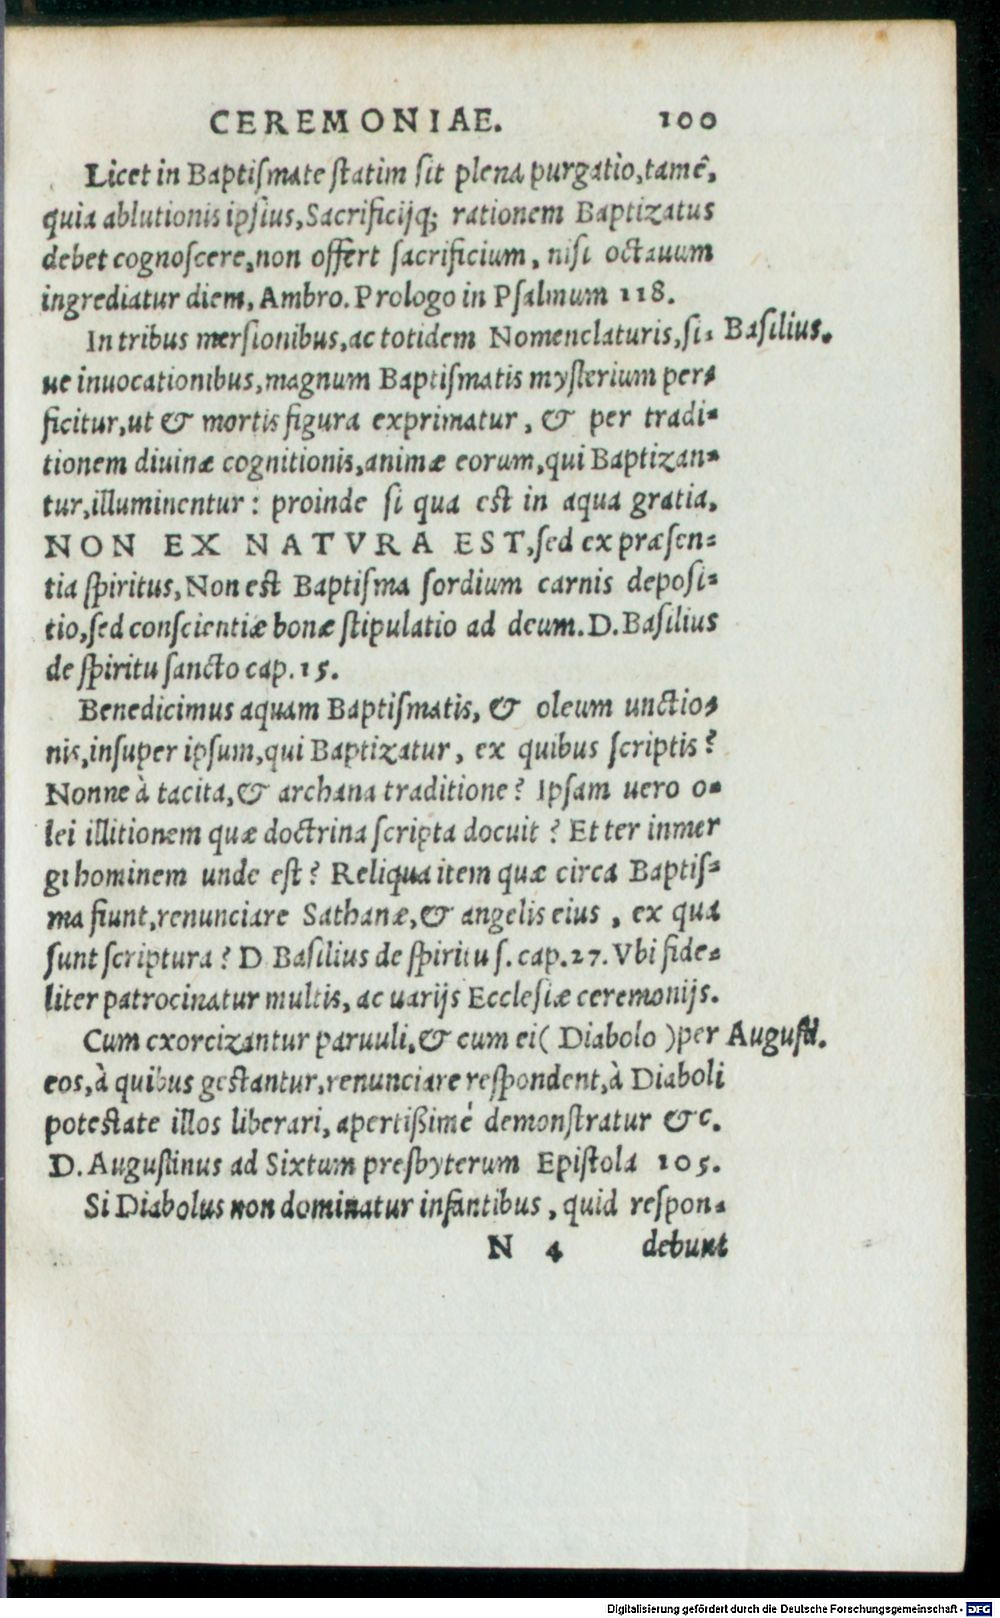 CEREMONIAE. 100
Licet in Baptiſmate ſtatim ſit plena purgatio, tamē,
quia ablutionis ipſius, Sacrificijq; rationem Baptizatus
debet cognoſcere, non offert ſacrificium, niſi octauum
ingrediatur diem, Ambro. Prologo in Pſalmum 118.
In tribus merſionibus, ac totidem Nomenclaturis, ſi- Baſilius.
ue inuocationibus, magnum Baptiſmatis myſterium per-
ficitur, ut & mortis figura exprimatur, & per tradi-
tionem diuinæ cognitionis, animæ eorum, qui Baptizan-
tur, illuminentur: proinde ſi qua est in aqua gratia,
NON EX NATVRA EST, ſed ex præſen-
tia ſpiritus, Non est Baptiſma ſordium carnis depoſi-
tio, ſed conſcientiæ bonæ ſtipulatio ad deum. D. Baſilius
de ſpiritu ſancto cap. 15.
Benedicimus aquam Baptiſmatis, & oleum unctio-
nis, inſuper ipſum, qui Baptizatur, ex quibus ſcriptis?
Nonne à tacita, & archana traditione? Ipſam uero o-
lei illitionem quæ doctrina ſcripta docuit? Et ter inmer
gi hominem unde est? Reliqua item quæ circa Baptiſ-
ma fiunt, renunciare Sathanæ, & angelis eius, ex qua
ſunt ſcriptura? D Baſilius de ſpiritu ſ. cap. 27. Vbi fide-
liter patrocinatur multis, ac uarijs Eccleſiæ ceremonijs.
Cum exorcizantur paruuli, & cum ei ( Diabolo ) per Auguſti.
eos, à quibus gestantur, renunciare reſpondent, à Diaboli
potestate illos liberari, apertißimè demonſtratur &c.
D. Auguſtinus ad Sixtum preſbyterum Epiſtola 105.
Si Diabolus non dominatur infantibus, quid reſpon-
N 4 debunt
Digitalisierung gefördert durch die Deutsche Forschungsgemeinschaft - DFG